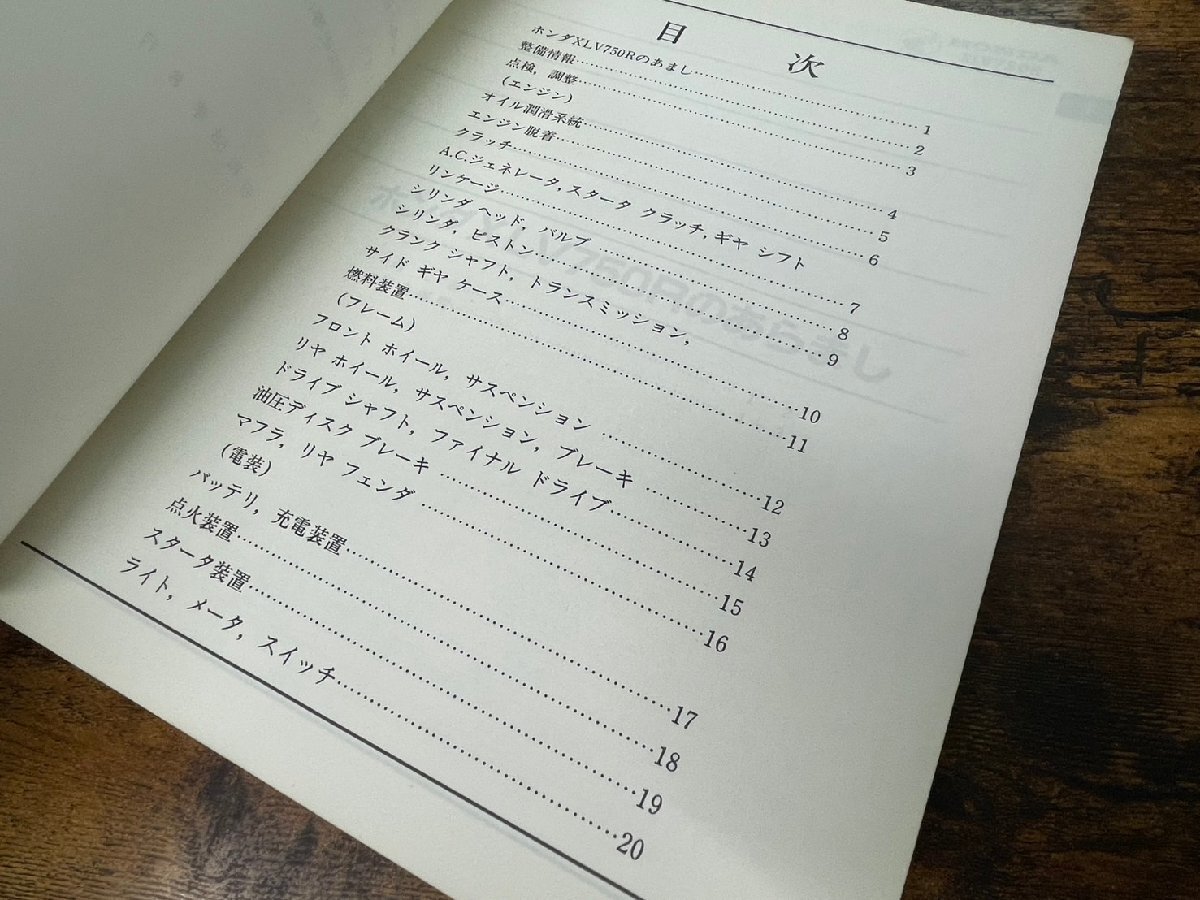 目 次
ホンダXLV750Rのあまし……………………1
整備情報……………………2
点検，調整……………………3
(エンジン)
オイル潤滑系統……………………4
エンジン脱着……………………5
クラッチ……………………6
A.C.ジェネレータ，スタータ クラッチ，ギヤ シフト
リンケージ……………………7
シリンダ ヘッド，バルブ……………………8
シリンダ，ピストン……………………9
クランク シャフト，トランスミッション，
サイド ギヤ ケース……………………10
燃料装置……………………11
(フレーム)
フロント ホイール，サスペンション……………………12
リヤ ホイール，サスペンション，ブレーキ……………………13
ドライブ シャフト，ファイナル ドライブ……………………14
油圧ディスク ブレーキ……………………15
マフラ，リヤ フェンダ……………………16
(電装)
バッテリ，充電装置……………………17
点火装置……………………18
スタータ装置……………………19
ライト，メータ，スイッチ……………………20
ホンダXLV750Rのあらまし